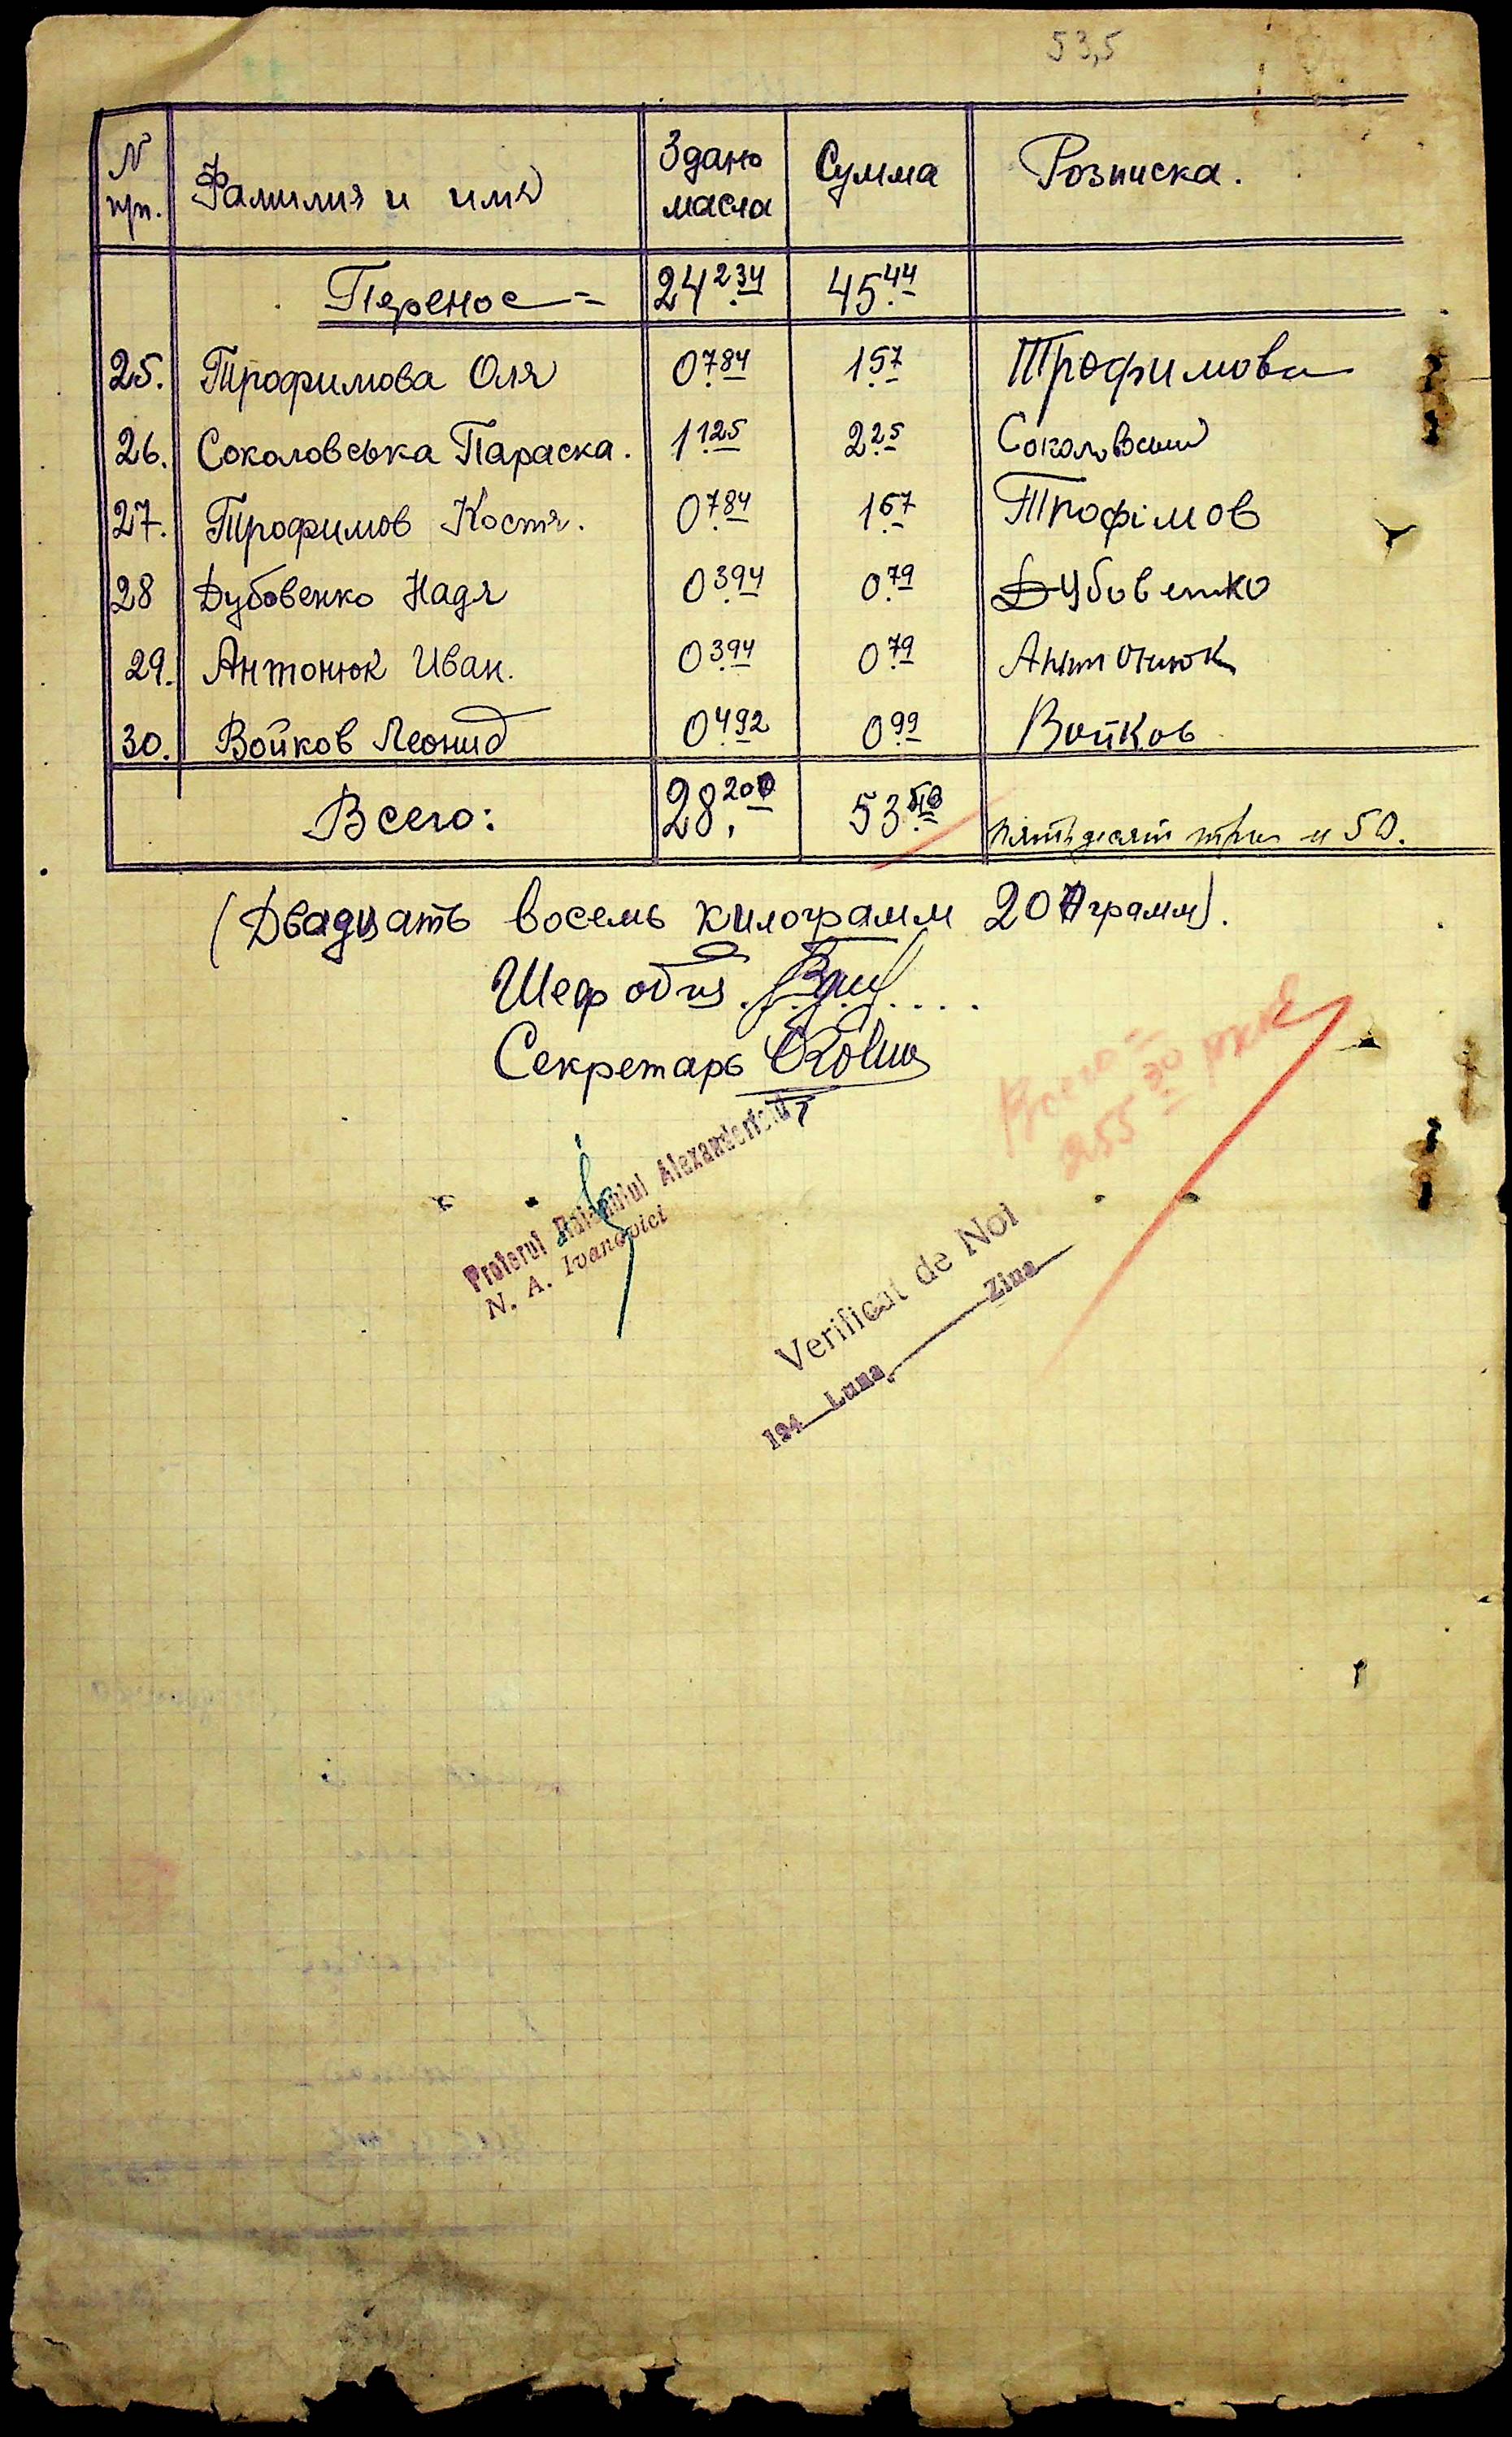 53,5
N пп. Фамилия и имя Здано масла Сумма Розписка.
Перенос = 24.234 45.44
25. Трофимова Оля 0.784 1.57 Трофимова
26. Соколовська Параска. 1.125 2.25
27. Трофимов Костя. 0.784 1.57 Трофімов
28 Дубовенко Надя 0.394 0.79 Дубовенко
29. Антонюк Иван. 0.394 0.79 Антонюк
30. Войков Леонид 0.492 0.99 Войков
Всего: 28.200 53.50 пятьдесят три и 50.
(Двадцать восемь килограмм 200 грамм).
Шеф
Секретарь
Pretorul Raionului Alexanderfeld
N. A. Ivanovici
Всего =
255 30
Verificat de Noi
194 Luna Ziua